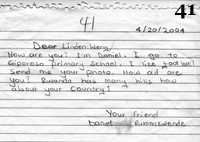 41
41
4/20/2004
Dear Linden Weny,
How are you? I'm Daniel. I go to
Giporoso primary School. I like football
Send me your photo. How old are
you? Rwanda has many hills how
about your Country?
Your friend
Daniel